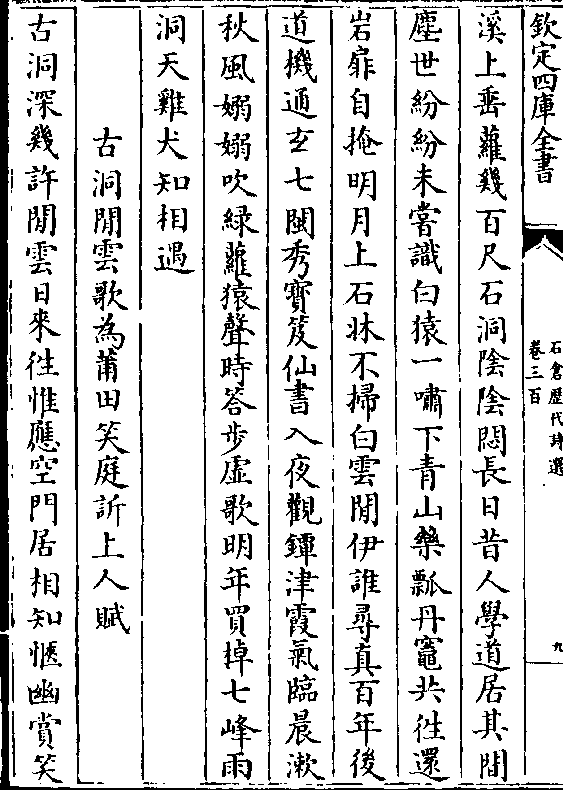 欽定四庫全書
石倉歷代詩選
卷三百
九
溪上垂蘿幾百尺石洞陰陰悶長日昔人學道居其間
塵世紛紛未嘗識白猿一嘯下青山藥瓢丹竈共往還
岩扉自掩明月上石牀不掃白雲閒伊誰尋真百年後
道機通玄七閩秀寶笈仙書入夜觀鐔津霞氣臨晨漱
秋風嫋嫋吹綠蘿猿聲時答步虛歌明年買棹七峰雨
洞天雞犬知相遇
古洞閒雲歌為莆田笑庭訢上人賦
古洞深幾許閒雲日來往惟應空門居相知愜幽賞笑